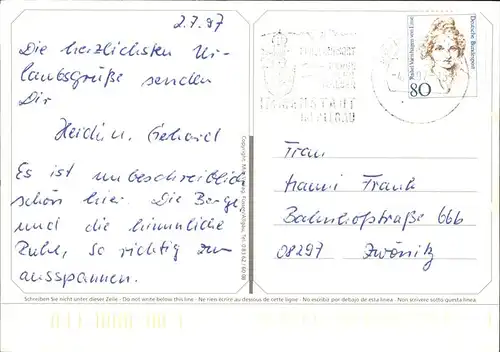 2.7.97
Die herzlichsten Ur-
laubsgrüße senden
Dir
Heidi u. Gerhard
Es ist unbeschreiblich
schön hier. Die Berge
und die himmliche
Ruhe, so richtig zum
ausspannen.
Deutsche Bundespost
80
Frau
Hanni Frank
Bahnhofstraße 66b
08297 Zwönitz
Schreiben Sie nicht unter dieser Zeile · Do not write below this line · Ne rien écrire au dessous de cette ligne · No escribir por debajo de esta linea · Non scrivere sotto questa linea